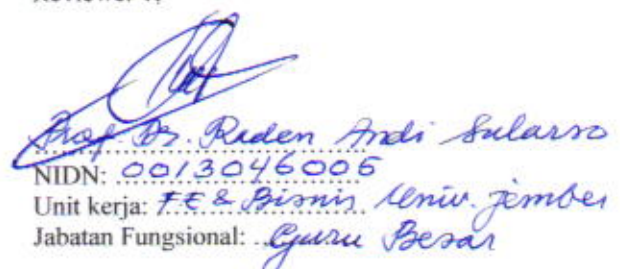 Prof. Dr. Raden Andi Sularso
NIDN: 0013046006
Unit kerja: FE & Bisnis Univ. Jember
Jabatan Fungsional: Guru Besar